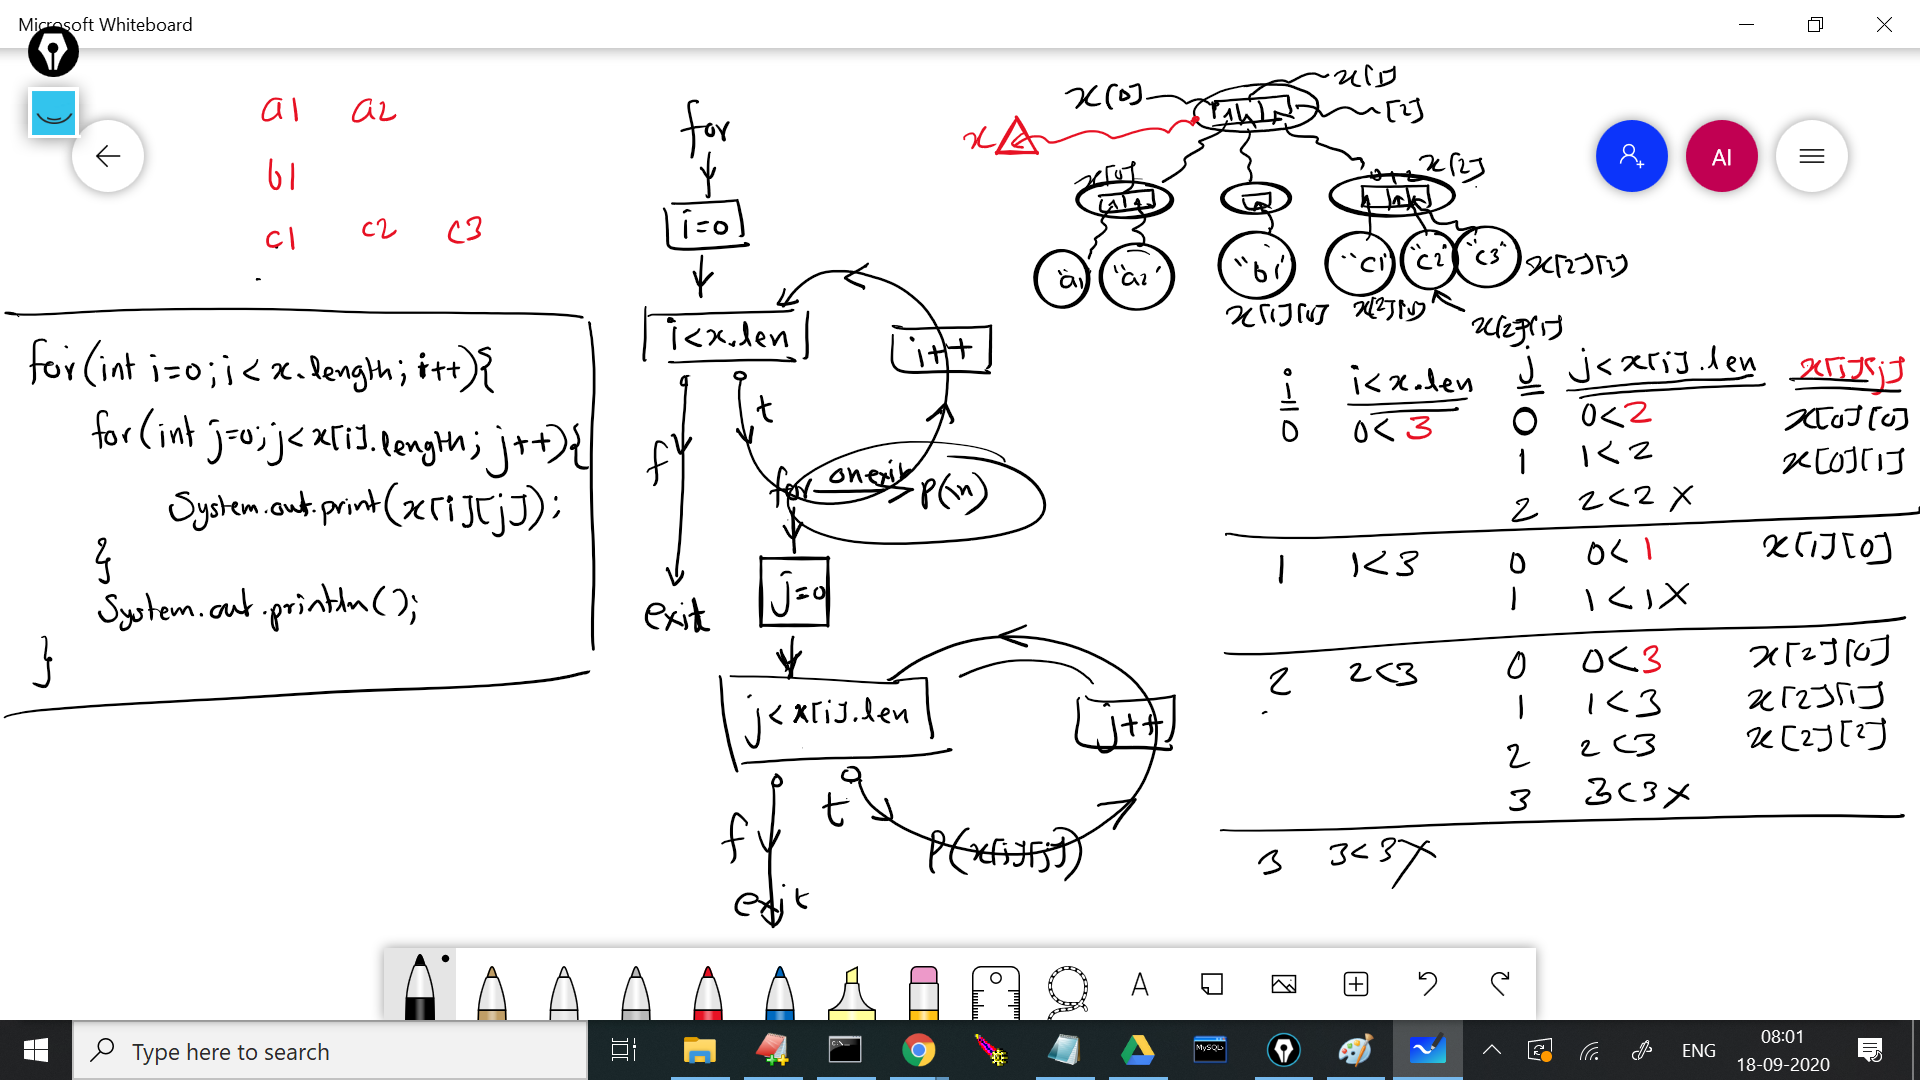 Microsoft Whiteboard
a1 a2
b1
c1 c2 c3
for(int i=0;i<x.length;i++){
for(int j=0;j<x[i].length;j++){
System.out.print(x[i][j]);
}
System.out.println();
}
for
i=0
i<x.len
i++
t
f
for on exit P(\n)
exit
j=0
j<x[i].len
j++
t
f
P(x[i][j])
exit
x
x[0]
x[1]
[2]
x[0]
0 1 2 x[2]
"a1
"a2"
"b1"
"c1"
"c2"
"c3"
x[2][2]
x[1][0]
x[2][0]
x[2][1]
i i<x.len j j<x[i].len x[i][j]
0 0<3 0 0<2 x[0][0]
1 1<2 x[0][1]
2 2<2 X
1 1<3 0 0<1 x[1][0]
1 1<1 X
2 2<3 0 0<3 x[2][0]
1 1<3 x[2][1]
2 2<3 x[2][2]
3 3<3 X
3 3<3 X
AI
A
Type here to search
C:\_
MySQL
ENG
08:01
18-09-2020